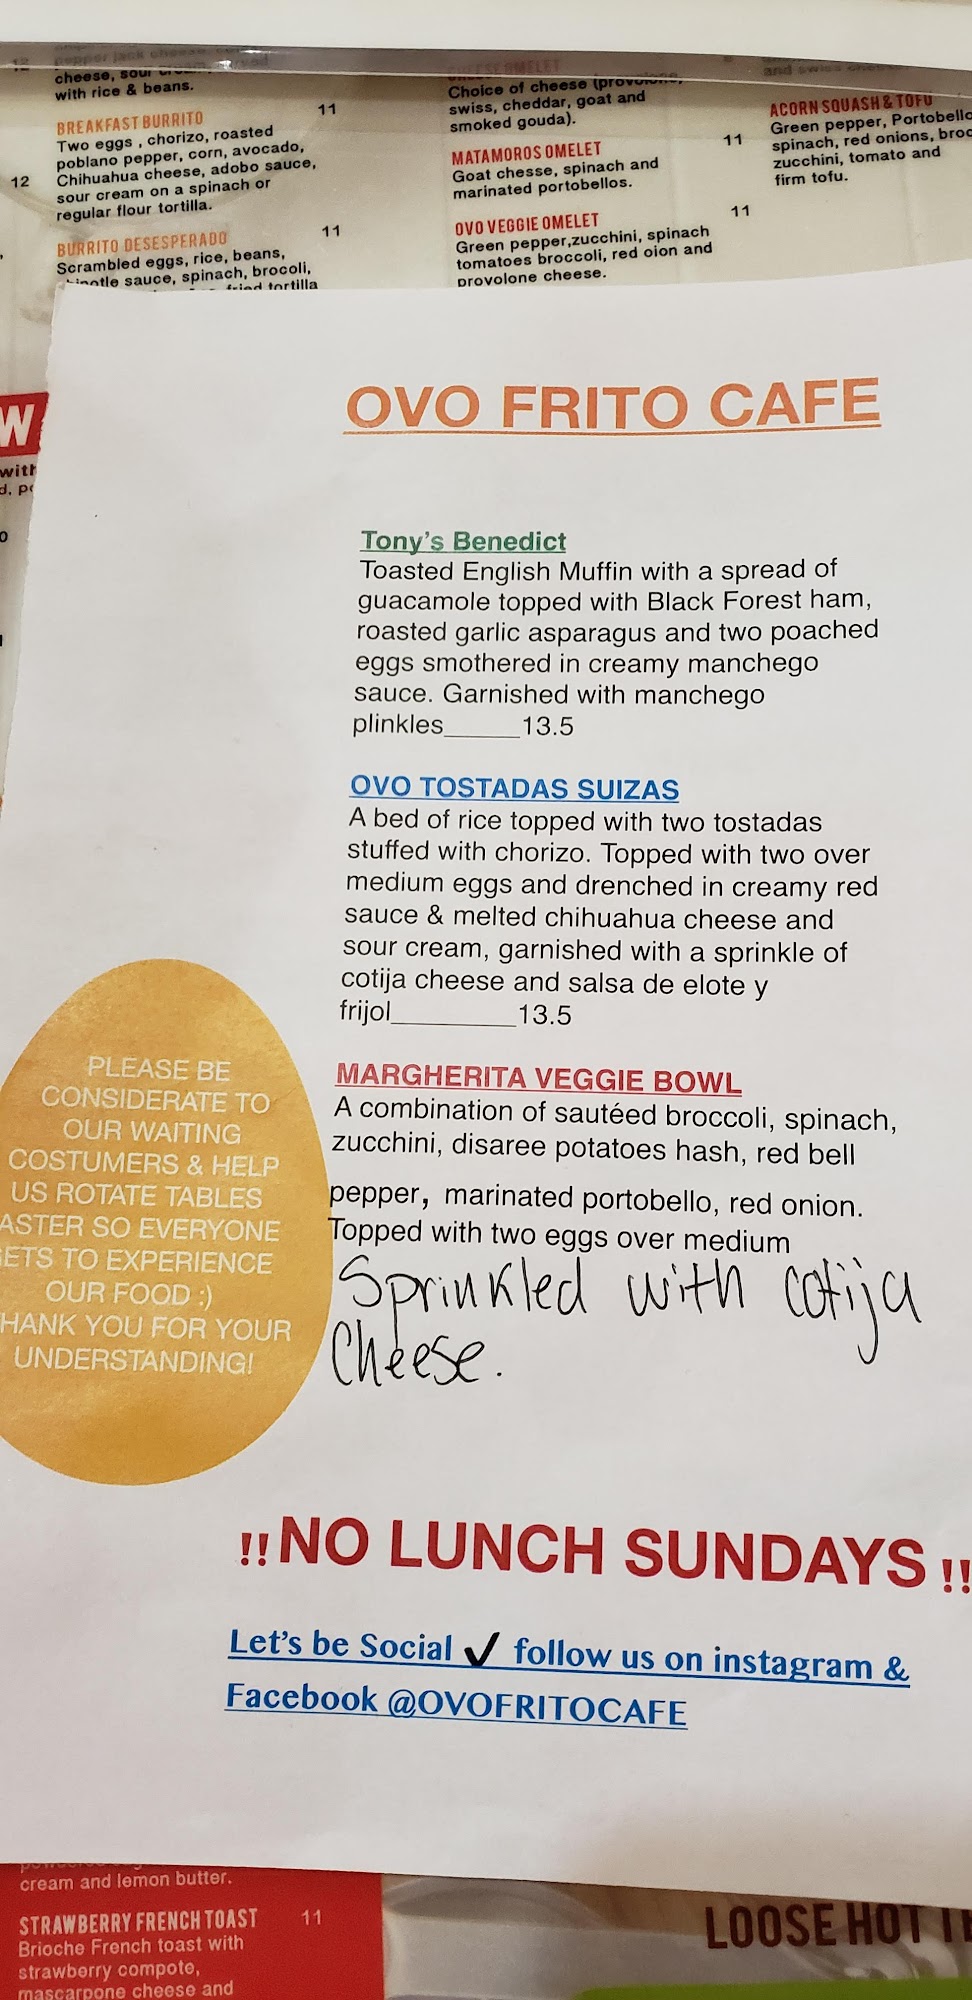 cheese, sour
with rice & beans.
BREAKFAST BURRITO 11
Two eggs , chorizo, roasted
poblano pepper, corn, avocado,
12
Chihuahua cheese, adobo sauce,
sour cream on a spinach or
regular flour tortilla.
BURRITO DESESPERADO 11
Scrambled eggs, rice, beans,
sauce, spinach, brocoli,
tortilla
Choice of cheese (provolone,
swiss, cheddar, goat and
smoked gouda).
MATAMOROS OMELET 11
Goat chesse, spinach and
marinated portobellos.
OVO VEGGIE OMELET 11
Green pepper,zucchini, spinach
tomatoes broccoli, red oion and
provolone cheese.
ACORN SQUASH & TOFU
Green pepper, Portobello
spinach, red onions, broc
zucchini, tomato and
firm tofu.
W
with
OVO FRITO CAFE
Tony's Benedict
Toasted English Muffin with a spread of
guacamole topped with Black Forest ham,
roasted garlic asparagus and two poached
eggs smothered in creamy manchego
sauce. Garnished with manchego
plinkles_____13.5
OVO TOSTADAS SUIZAS
A bed of rice topped with two tostadas
stuffed with chorizo. Topped with two over
medium eggs and drenched in creamy red
sauce & melted chihuahua cheese and
sour cream, garnished with a sprinkle of
cotija cheese and salsa de elote y
frijol________13.5
MARGHERITA VEGGIE BOWL
A combination of sautéed broccoli, spinach,
zucchini, disaree potatoes hash, red bell
pepper, marinated portobello, red onion.
Topped with two eggs over medium
Sprinkled with cotija
Cheese.
PLEASE BE
CONSIDERATE TO
OUR WAITING
COSTUMERS & HELP
US ROTATE TABLES
ASTER SO EVERYONE
ETS TO EXPERIENCE
OUR FOOD :)
HANK YOU FOR YOUR
UNDERSTANDING!
!! NO LUNCH SUNDAYS !!
Let's be Social ✔ follow us on instagram &
Facebook @OVOFRITOCAFE
cream and lemon butter.
STRAWBERRY FRENCH TOAST 11
Brioche French toast with
strawberry compote,
mascarpone cheese and
LOOSE HOT